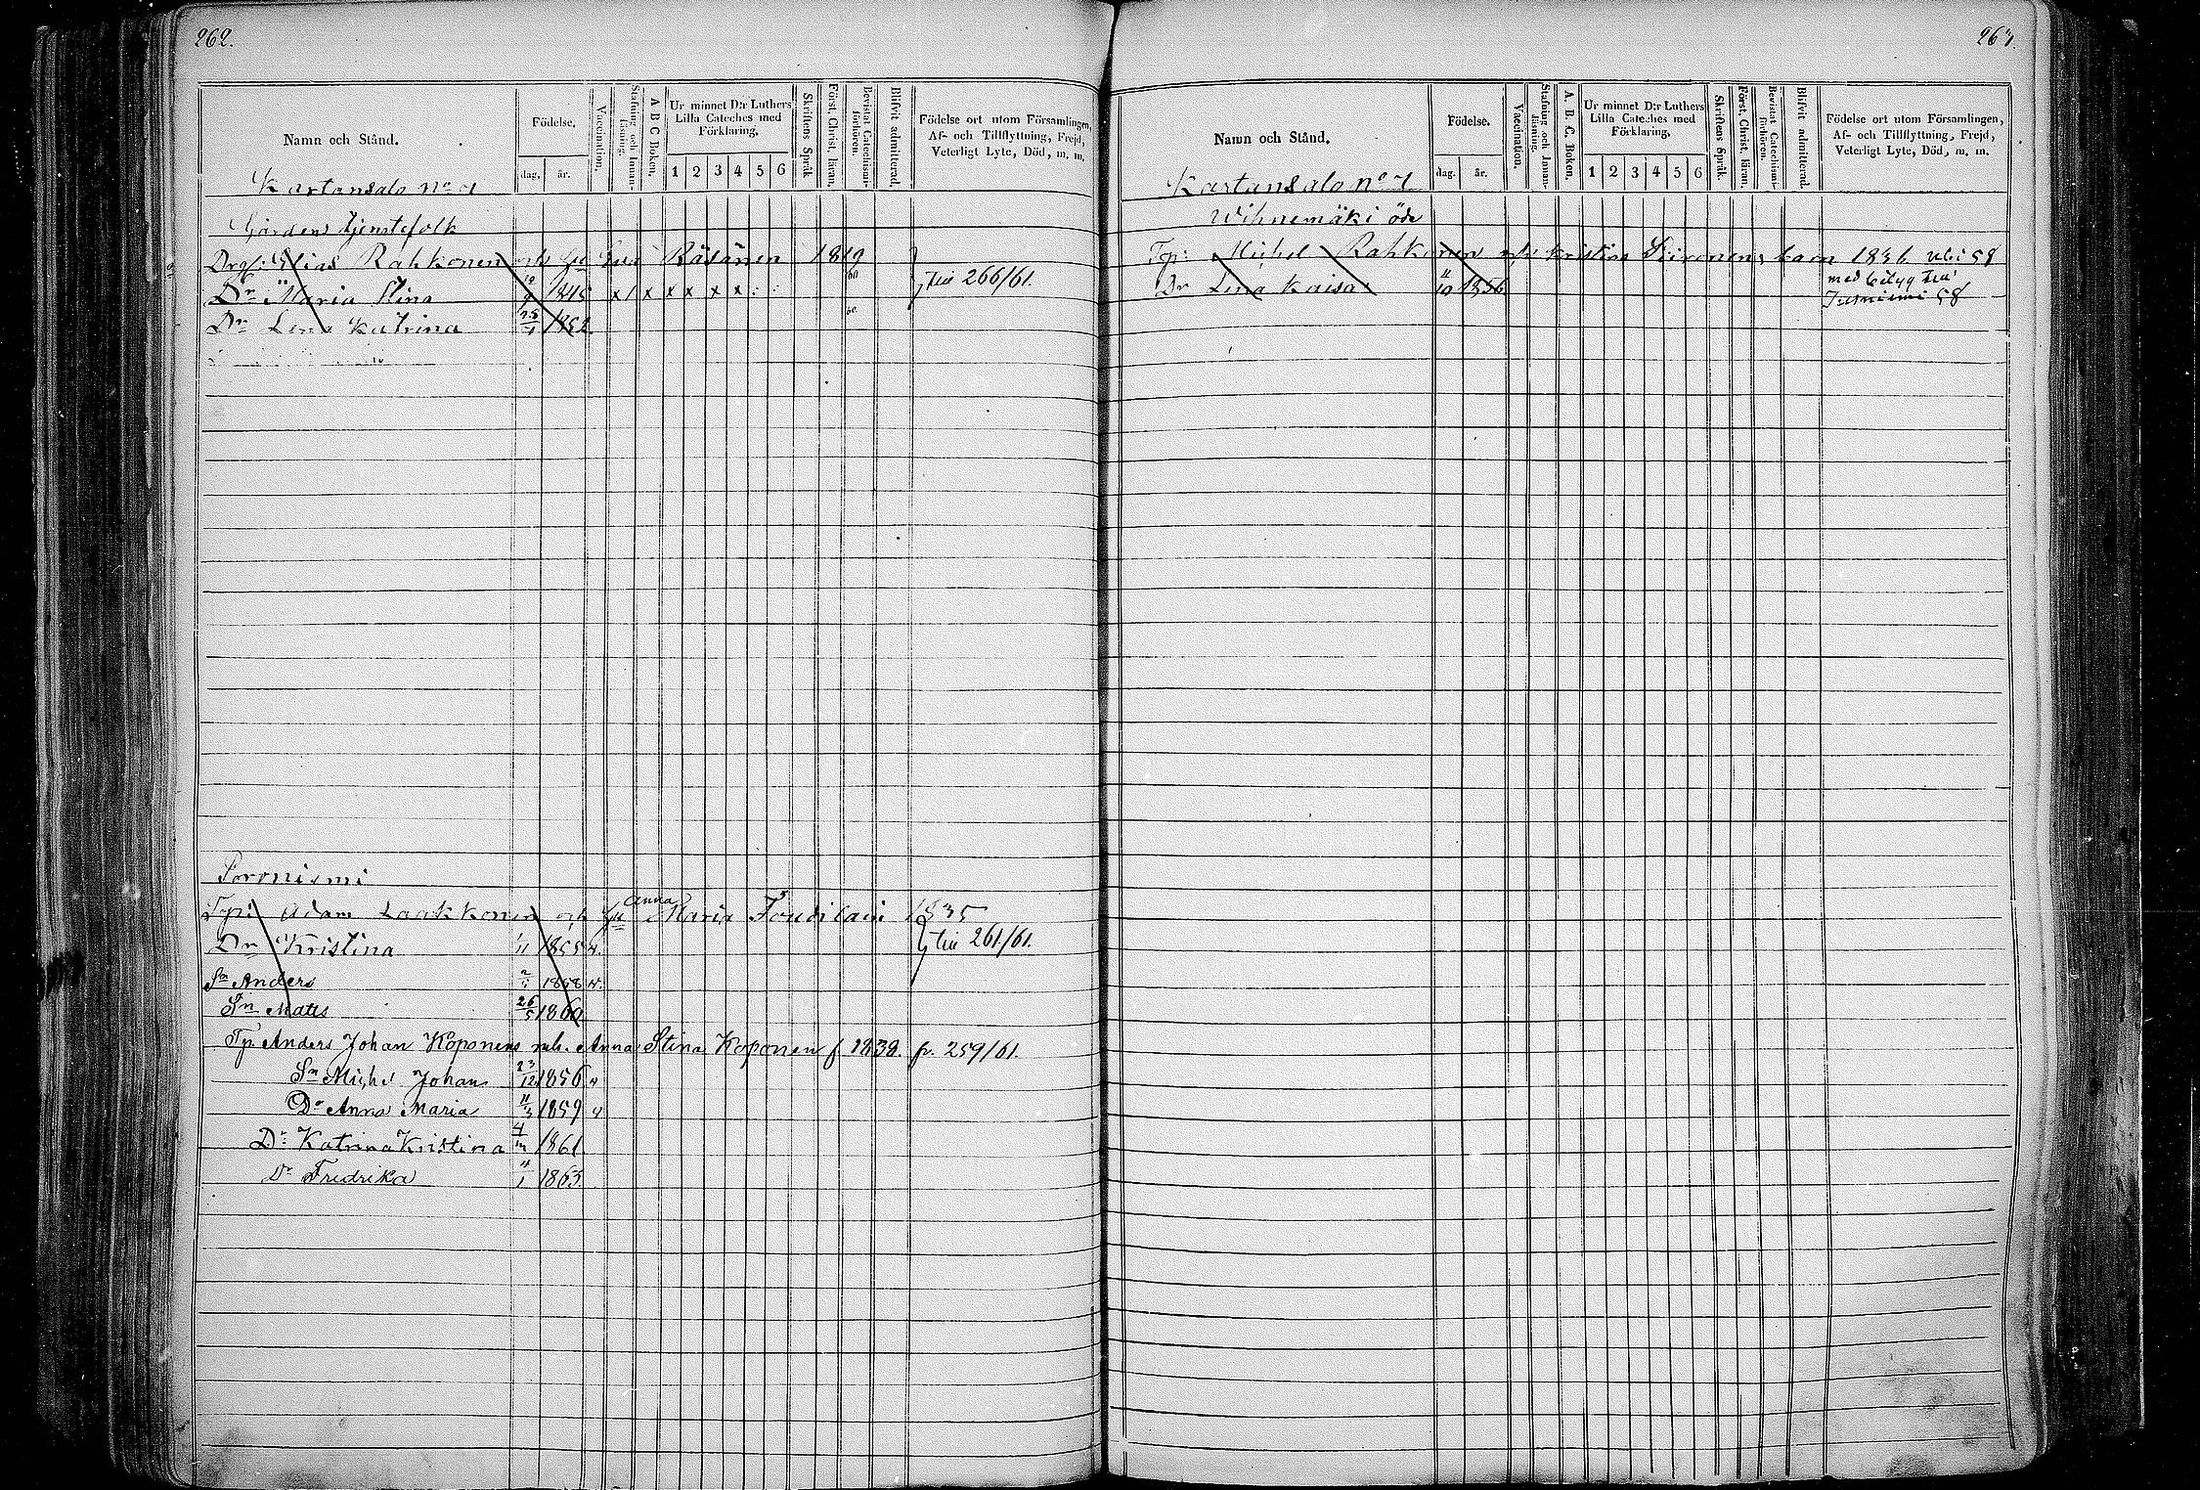 262.
Namn och Stånd.
Födelse.
dag. år.
Vaccination.
Stafning och Innanläsning.
A B C Boken.
Ur minnet D:r Luthers Lilla Cateches med Förklaring.
1 2 3 4 5 6
Skriftens Språk
Först. Christ. läran.
Bevistat Catechismiförhören.
Blifvit admitterad.
Födelse ort utom Församlingen,
Af- och Tillflyttning, Frejd,
Veterligt Lyte, Död, m. m.
Kartansalo No
Gårdens tjenstefolk
Elias Rahkonen och Räisänen 1819
Dr Maria Stina 1845 x / x x x x x till 266/61.
Dr Lena Katrina 1852
Soroniemi
Adam Laakkonen och Anna Maria 1835
Dr Kristina 1855 till 261/61.
Sn Anders 1858
Sn Mats 26/5 1860
Anders Johan Koponens Anna Stina Koponen f. 1838. fr. 259/61.
Sn Michel Johan 23/12 1856
Dr Anna Maria 1859
Dr Katrina Kristina 1861
Dr Fredrika 1863
263.
Namn och Stånd.
Födelse.
dag. år.
Vaccination.
Stafning och Innanläsning.
A. B. C. Boken.
Ur minnet D:r Luthers Lilla Cateches med Förklaring.
1 2 3 4 5 6
Skriftens Språk
Först. Christ. läran.
Bevistat Catechismiförhören.
Blifvit admitterad.
Födelse ort utom Församlingen,
Af- och Tillflyttning, Frejd,
Veterligt Lyte, Död, m. m.
Kartansalo No
Wihnemäki öde
Michel Rahkonen Kristina barn 1836 58
Dr Lena Kaisa 11/10 1856 med
58